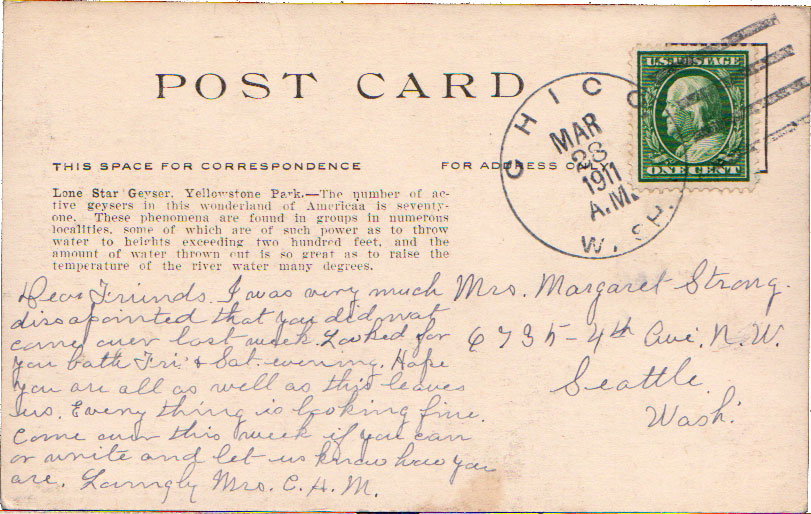 POST CARD
U.S. POSTAGE
ONE CENT
CHICO
MAR
28
1911
A.M.
WASH.
THIS SPACE FOR CORRESPONDENCE
FOR ADDRESS ONLY
Lone Star Geyser, Yellowstone Park.—The number of ac-
tive geysers in this wonderland of Americaa is seventy-
one. These phenomena are found in groups in numerous
localities, some of which are of such power as to throw
water to heights exceeding two hundred feet, and the
amount of water thrown out is so great as to raise the
temperature of the river water many degrees.
Dear Friends. I was very much
dissapointed that you did not
come over last week. Looked for
you both Fri. & Sat. evening. Hope
you are all as well as this leaves
us. Every thing is looking fine.
Come over this week if you can
or write and let us know how you
are. Lovingly Mrs. C. H. M.
Mrs. Margaret Strong.
6735-4th Ave. N.W.
Seattle
Wash.